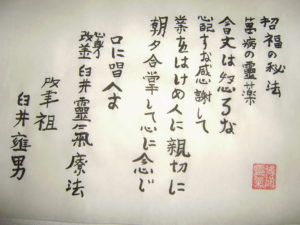 招福の秘法
萬病の靈薬
今日丈は怒るな
心配すな感謝して
業をはけめ人に親切に
朝夕合掌して心に念じ
口に唱へよ
心身改善臼井靈氣療法
肇祖
臼井甕男